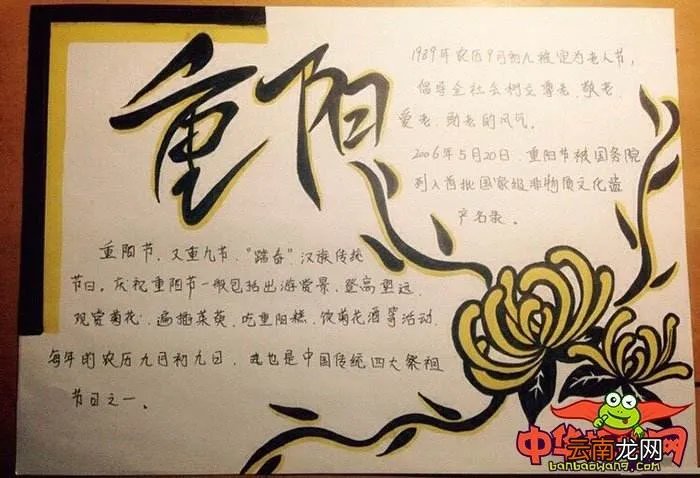 重阳
1989年农历9月初九被定为老人节,
倡导全社会树立尊老、敬老、
爱老、助老的风气。
2006年5月20日,重阳节被国务院
列入首批国家级非物质文化遗
产名录。
重阳节,又重九节、“踏春”汉族传统
节日。庆祝重阳节一般包括出游赏景、登高望远、
观赏菊花、遍插茱萸、吃重阳糕、饮菊花酒等活动,
每年的农历九月初九日,也是中国传统四大祭祖
节日之一。
云南龙网
banbaowang.com